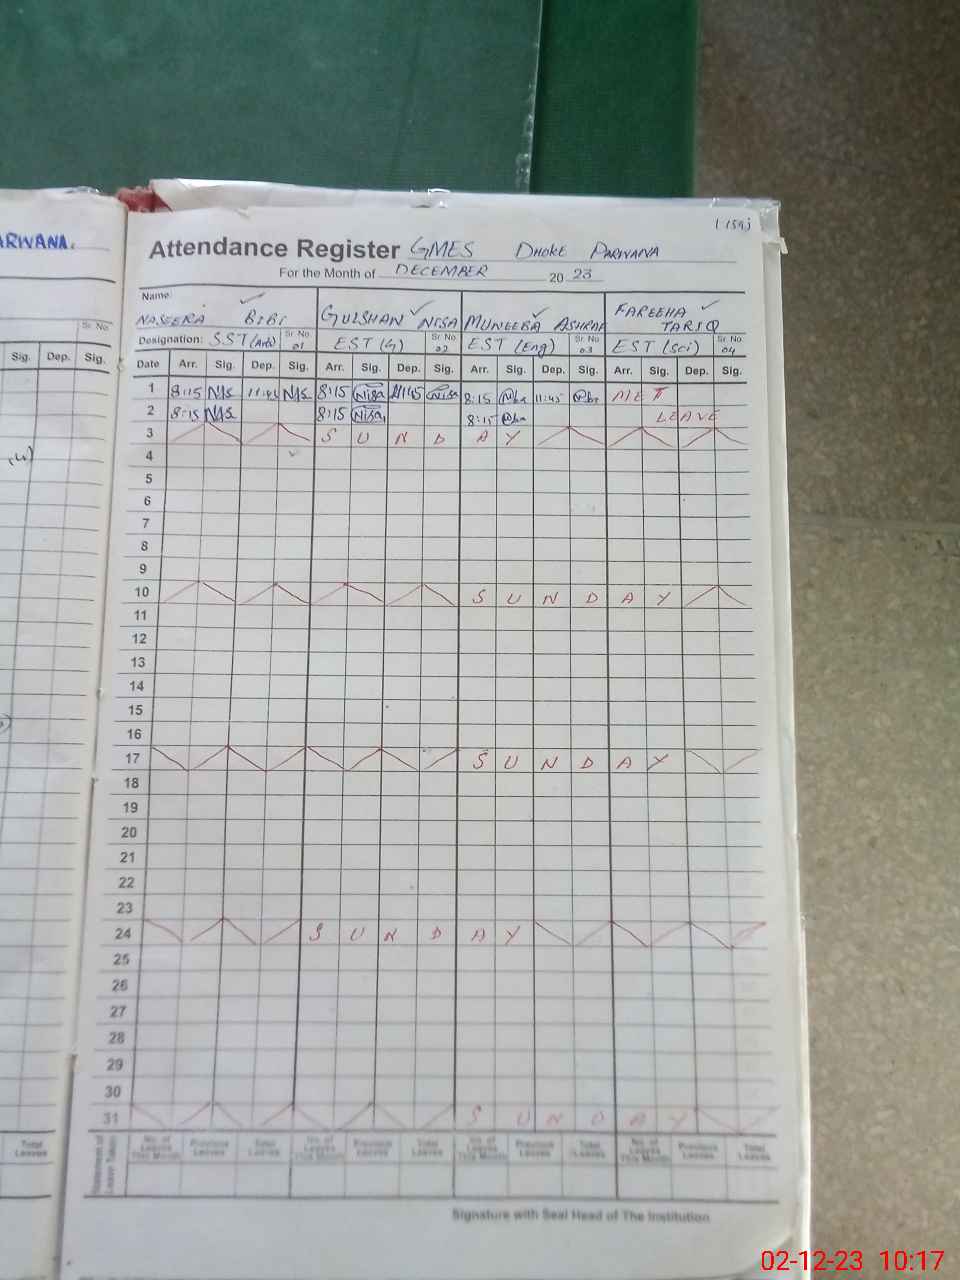 ARWANA.
Attendance Register GMES DHOKE PARWANA
For the Month of DECEMBER 20 23
Name:
NASEERA BIBI GULSHAN NISA MUNEEBA ASHRAF FAREEHA TARIQ
Designation: SST (Arts) Sr. No. 01 EST (G) Sr. No. 02 EST (Eng) Sr. No. 03 EST (Sci) Sr. No. 04
Sr. No.
Sig. Dep. Sig.
Date Arr. Sig. Dep. Sig. Arr. Sig. Dep. Sig. Arr. Sig. Dep. Sig. Arr. Sig. Dep. Sig.
1 8:15 NAS 11:45 NAS 8:15 Nisa 11:45 Nisa 8:15 11:45
2 8:15 NAS 8:15 Nisa 8:15 LEAVE
3 S U N D A Y
4
5
6
7
8
9
10 S U N D A Y
11
12
13
14
15
16
17 S U N D A Y
18
19
20
21
22
23
24 S U N D A Y
25
26
27
28
29
30
31 S U N D A Y
Total Leaves
Statement of Leave Taken No. of Leaves This Month Previous Leaves Total Leaves No. of Leaves This Month Previous Leaves Total Leaves No. of Leaves This Month Previous Leaves Total Leaves No. of Leaves This Month Previous Leaves Total Leaves
Signature with Seal Head of The Institution
02-12-23 10:17